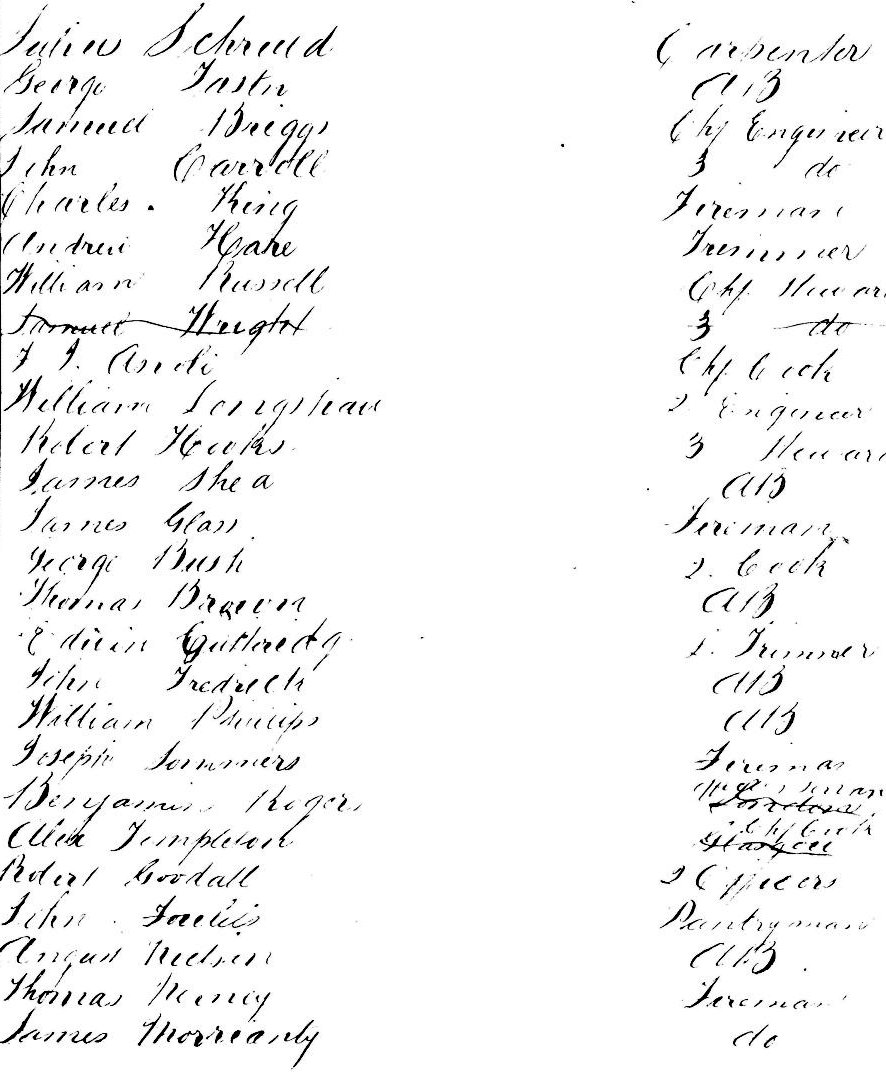 Julius Schreud Carpenter
George Tastn AB
Samuel Briggs Chf Engineer
John Carroll 3 do
Charles King Fireman
Andrew Hare Trimmer
William Russell Chf Stewar
Samuel Wright 3 do
F J. Chf Cook
William Longshaw 2. Engineer
Robert Hooks 3 Stewar
James Shea AB
James Glass Fireman
George Bush 2. Cook
Thomas Brown AB
Edwin Guttredg Trimmer
John Fredrech AB
William Phillips AB
Joseph Sommers Fireman
Benjamin Rogers London
Chf Cook
Alex Templeton Glasgow
Robert Goodall 2 Officers
John Foulis Pantryman
Angus Neilson AB
Thomas Fireman
James do